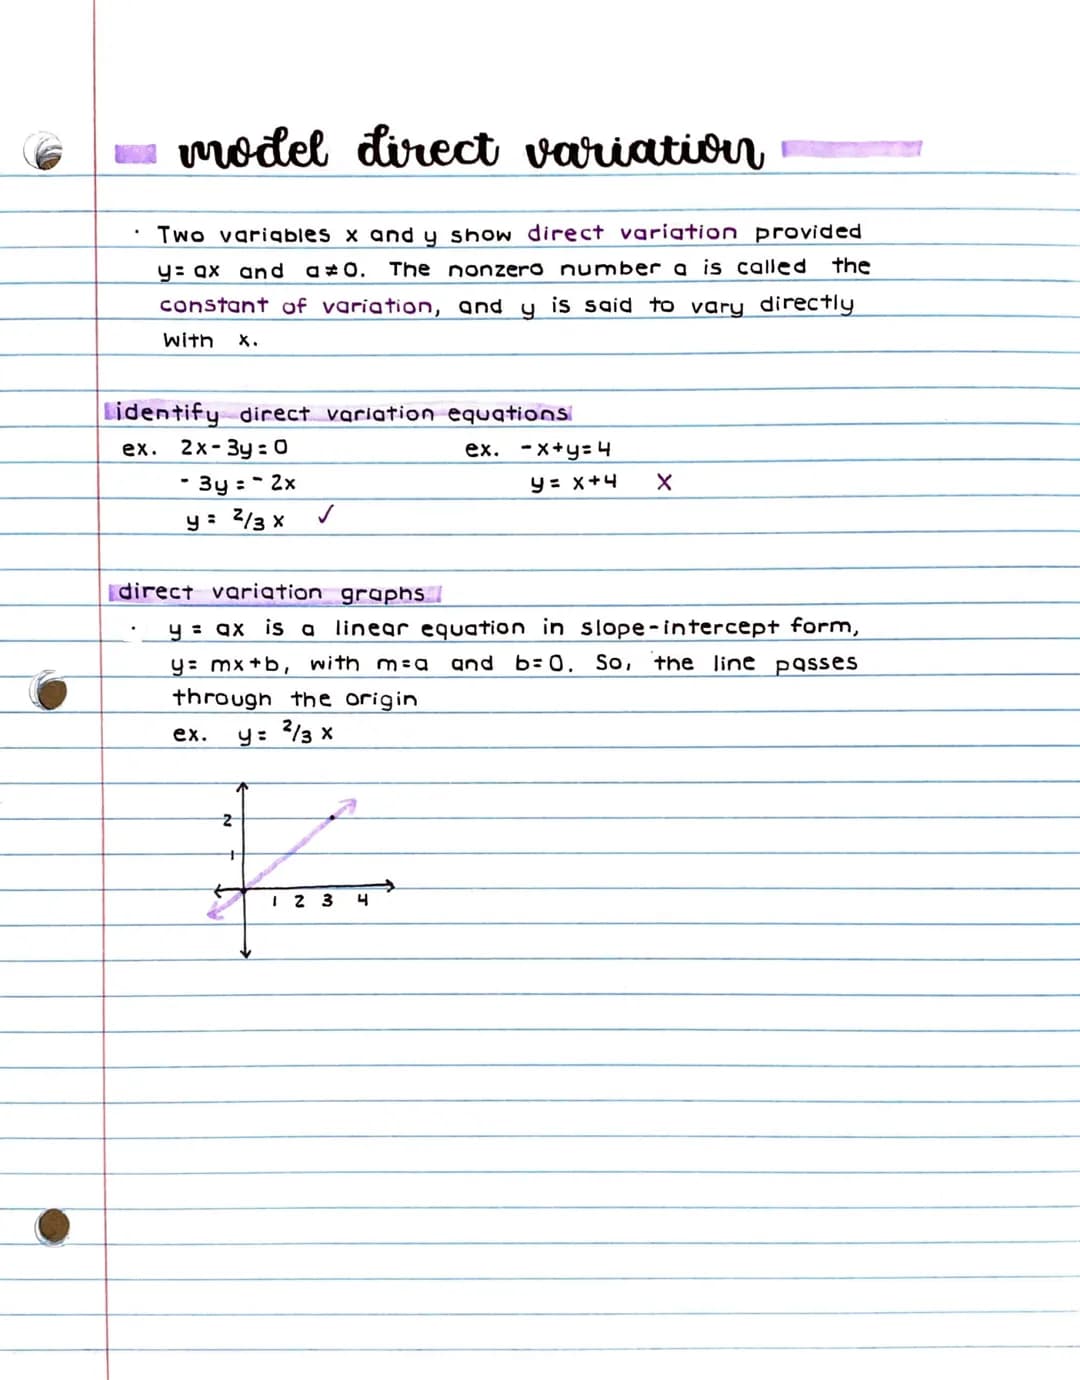 model direct variation
· Two variables x and y show direct variation provided
y = ax and a ≠ 0. The nonzero number a is called the
constant of variation, and y is said to vary directly
with x.
identify direct variation equations
ex. 2x - 3y = 0 ex. -x+y=4
-3y = -2x y = x+4 X
y = 2/3 x ✓
direct variation graphs
· y = ax is a linear equation in slope-intercept form,
y = mx+b, with m=a and b=0. So, the line passes
through the origin
ex. y = 2/3 x
2
1
1 2 3 4